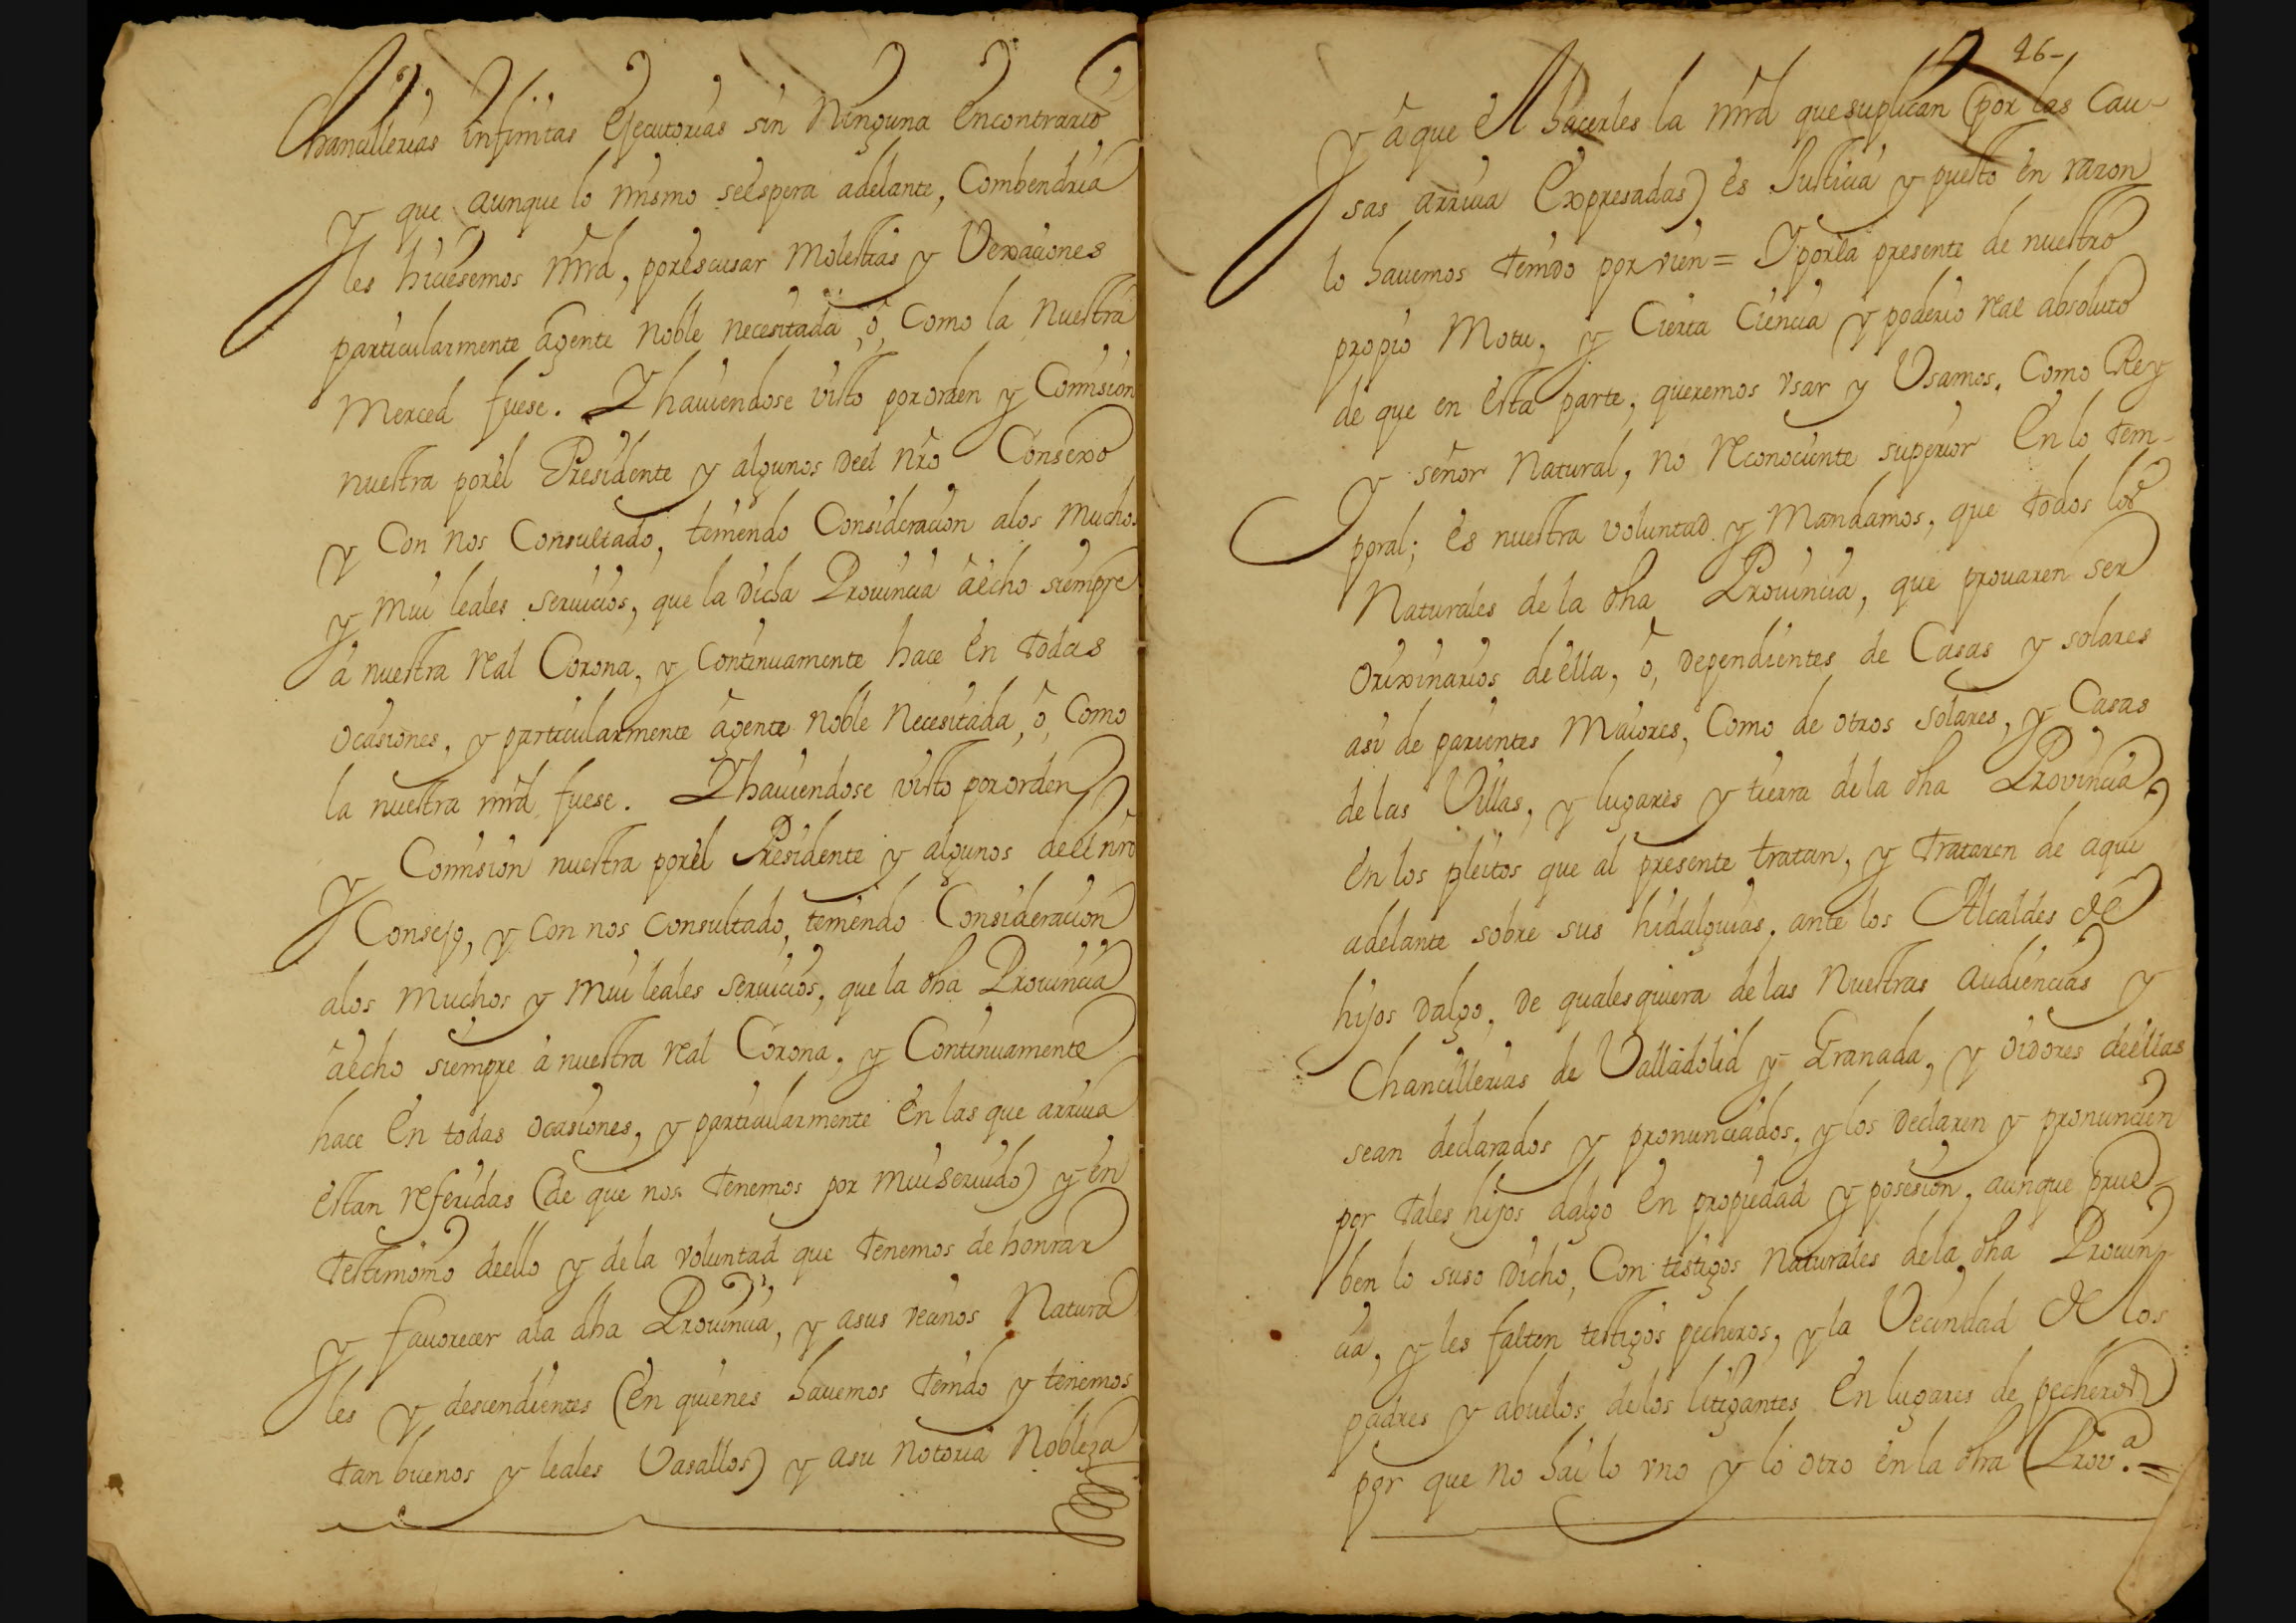 Chancillerias infinitas Ejecutorias sin Ninguna Encontrario
y que aunque lo mismo seespera adelante, Combendria
les hiciesemos mrd, porescusar Molestias y Vexaciones
particularmente agente Noble necesitada, ó, Como la Nuestra
Merced fuese. Y haviendose visto pororden y Comision
nuestra porel Presidente y algunos deel nro Consexo
y Con nos Consultado, teniendo Consideracion alos muchos
y Mui leales servicios, que la dicha Provincia áècho siempre
á nuestra real Corona, y Continuamente hace En todas
ocasiones, y particularmente ágente noble Necesitada, ó, Como
la nuestra mrd fuese. Y haviendose visto pororden
y Comision nuestra porel Presidente y algunos deel nro
Consejo, y con nos consultado, teniendo Consideracion
alos Muchos y Mui leales servicios, que la dha Provincia
áècho siempre á nuestra real Corona, y Continuamente
hace En todas ocasiones, y particularmente En las que arriva
Estan referidas (de que nos tenemos por mui servido) y en
testimonio deello y dela voluntad que tenemos de honrar
y favorecer ala dha Provincia, y asus vecinos Natura
les y descendientes (En quienes havemos tenido y tenemos
tan buenos y leales Vasallos) y asu notoria Nobleza
26-
Y áque El hacerles la mrd quesuplican (por las Cau-
sas arriva Expresadas) es Justicia y puesto en razon
lo havemos tenido por vien = Y porla presente de nuestro
propio Motu, y Cierta Ciencia y poderio real absoluto
de que en Esta parte, queremos vsar y Vsamos, Como Rey
y señor Natural, no reconociente superior En lo tem-
poral; es nuestra voluntad y Mandamos, que todos los
Naturales de la dha Provincia, que provaren ser
orixinarios deella, ó, dependientes de Casas y solares
asi de parientes Maiores, Como de otros solares, y Casas
delas Villas, y lugares y tierra dela dha Provincia
En los pleitos que al presente tratan, y trataren de aqui
adelante sobre sus hidalguias, ante los Alcaldes de
hijos dalgo, de qualesquiera delas Nuestras audiencias y
Chancillerias de Valladolid y Granada, y oidores deellas
sean declarados y pronunciados, y los declaren y pronuncien
por tales hijos dalgo En propiedad y posesion, aunque prue-
ben lo suso dicho, Con testigos Naturales dela dha Provin-
cia, y les falten testigos pecheros, y la Vecindad de los
padres y abuelos delos litigantes En lugares de pecheros
por que no hai lo vno y lo otro en la dha Prov.ª =